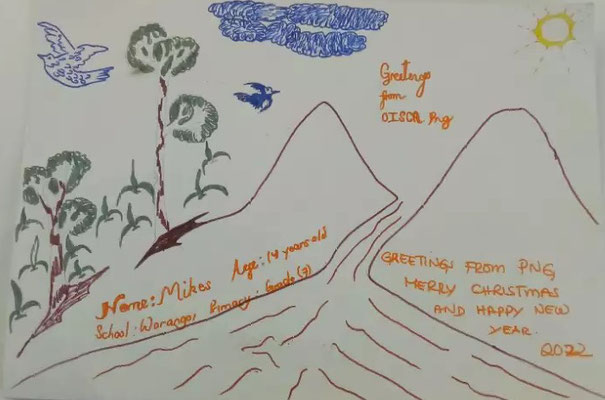 Greetings
from
OISCA Png
Name: Mikes Age: 14 years old
School: Warangoi Primary: Grade (7)
GREETINGS FROM PNG
MERRY CHRISTMAS
AND HAPPY NEW
YEAR.
2022